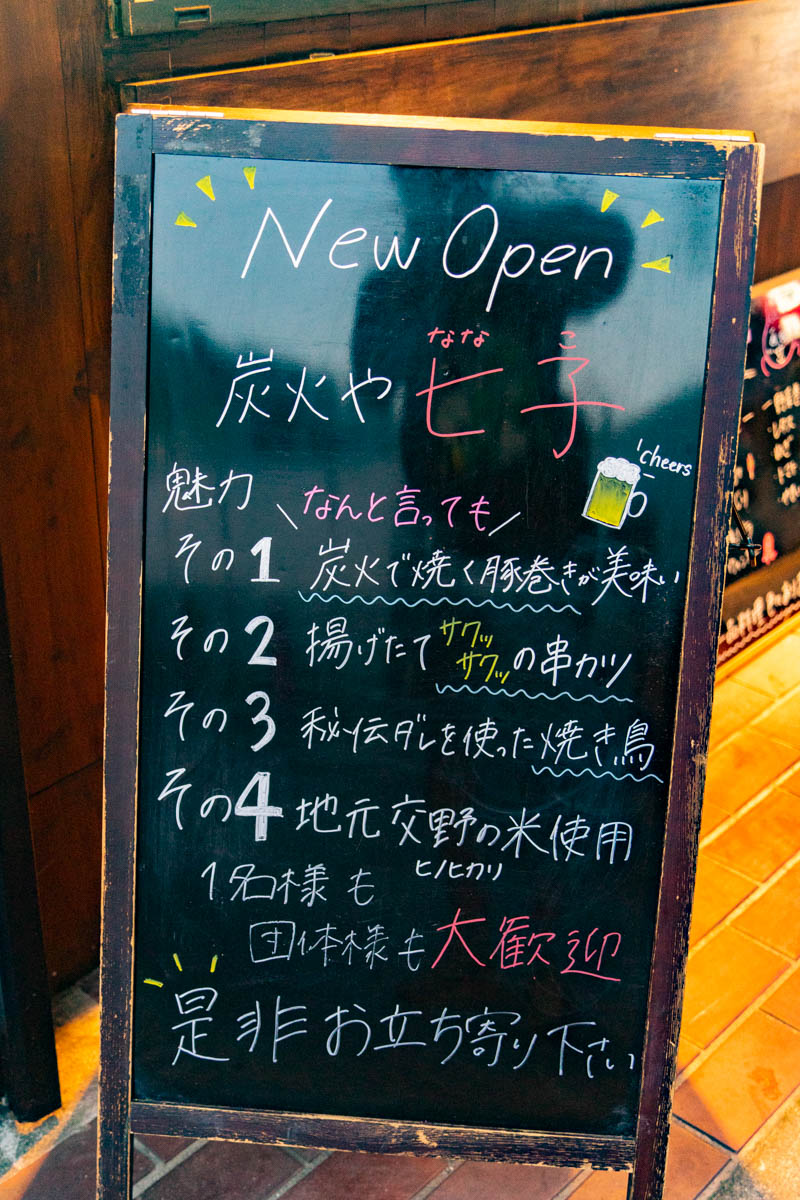 New Open
なな こ
炭火や 七子
'cheers
魅力
\なんと言っても/
その1 炭火で焼く豚巻きが美味い
その2 揚げたてサクッサクッの串カツ
その3 秘伝ダレを使った焼き鳥
その4 地元交野の米使用
ヒノヒカリ
1名様も
団体様も大歓迎
是非お立ち寄り下さい